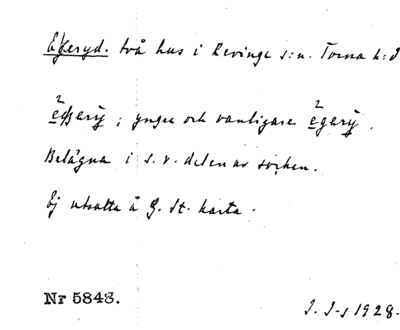 Eggeryd. två hus i Revinge s:n. Torna h:d
²eggarȳ; yngre och vanligare ²egarȳ.
Belägna i s.v. delen av socken.
Ej utsatta å G. St. karta.
Nr 5848.
I. I-s 1928.